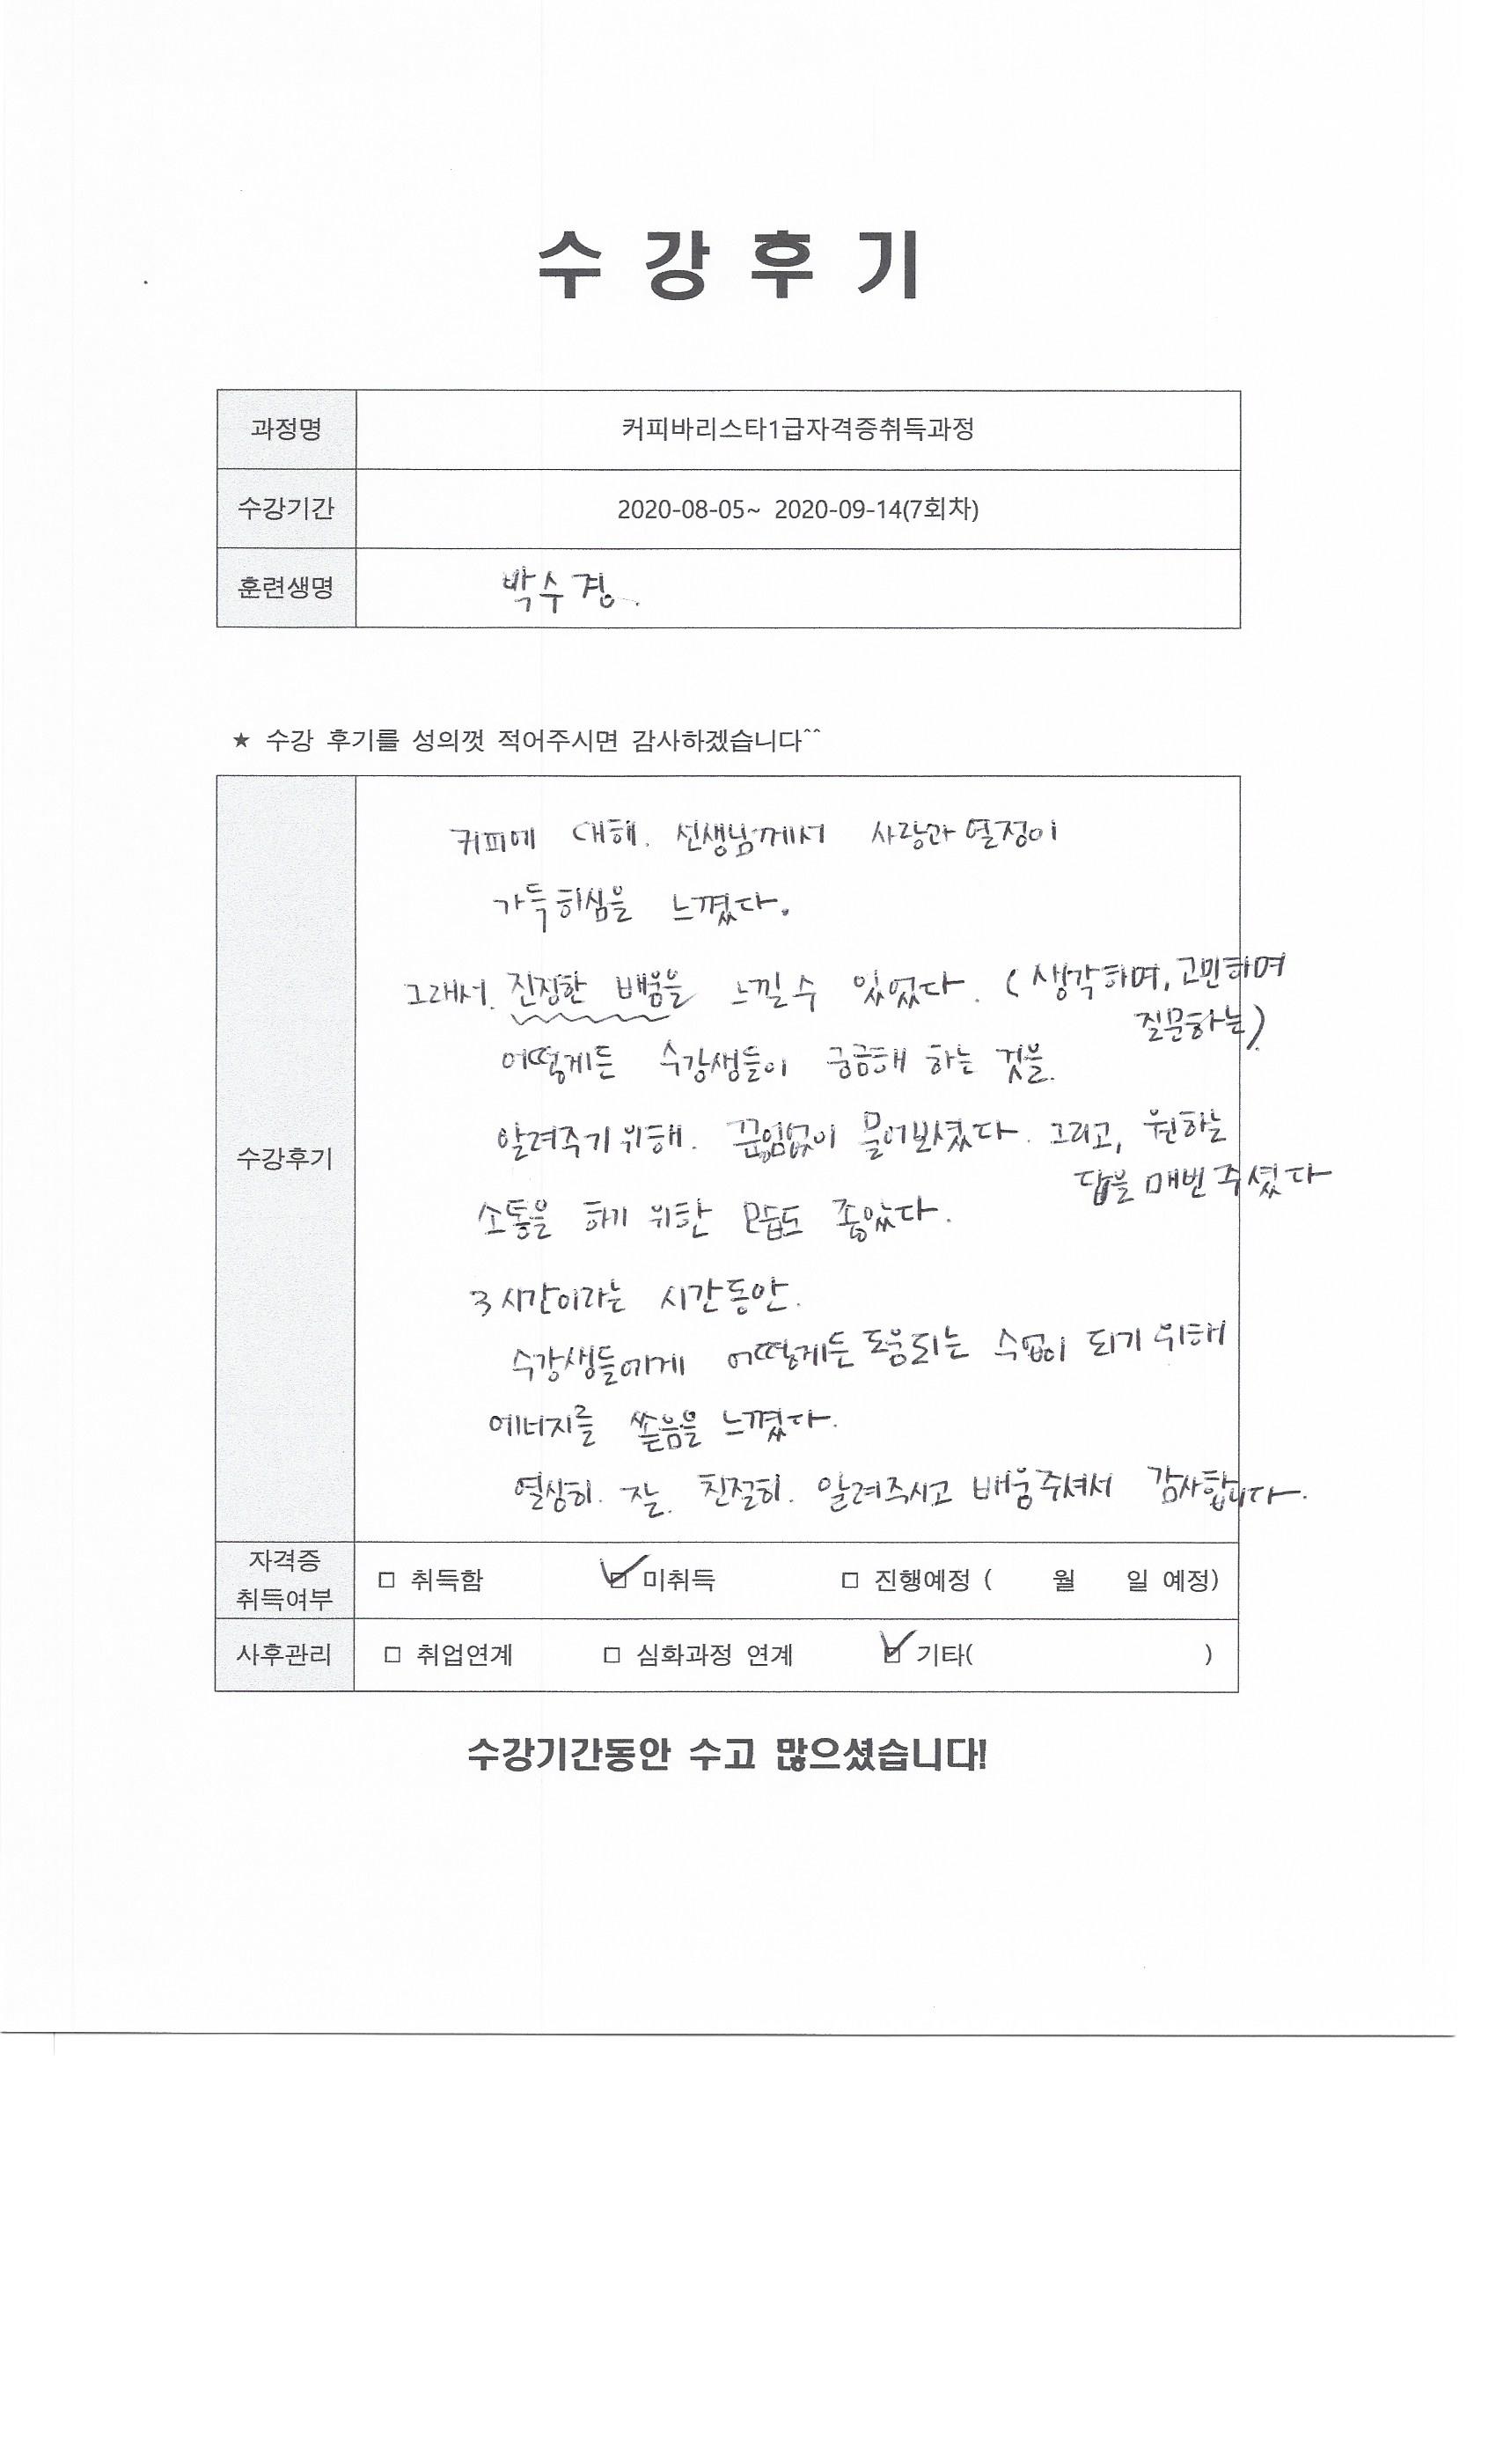 수 강 후 기
과정명 커피바리스타1급자격증취득과정
수강기간 2020-08-05~ 2020-09-14(7회차)
훈련생명 박수경.
★ 수강 후기를 성의껏 적어주시면 감사하겠습니다^^
수강후기
커피에 대해. 선생님께서 사랑과 열정이
가득하심을 느꼈다.
그래서. 진정한 배움을 느낄수 있었다. (생각하며, 고민하며
질문하는)
어떻게든 수강생들이 궁금해 하는 것을.
알려주기위해. 끊임없이 물어보셨다. 그리고, 원하는
답을 매번 주셨다
소통을 하기 위한 모습도 좋았다.
3시간이라는 시간동안.
수강생들에게 어떻게든 도움되는 수업이 되기 위해
에너지를 쏟음을 느꼈다.
열심히. 잘. 친절히. 알려주시고 배움주셔서 감사합니다.
자격증
취득여부 □ 취득함 ☑ 미취득 □ 진행예정 ( 월 일 예정)
사후관리 □ 취업연계 □ 심화과정 연계 ☑ 기타( )
수강기간동안 수고 많으셨습니다!